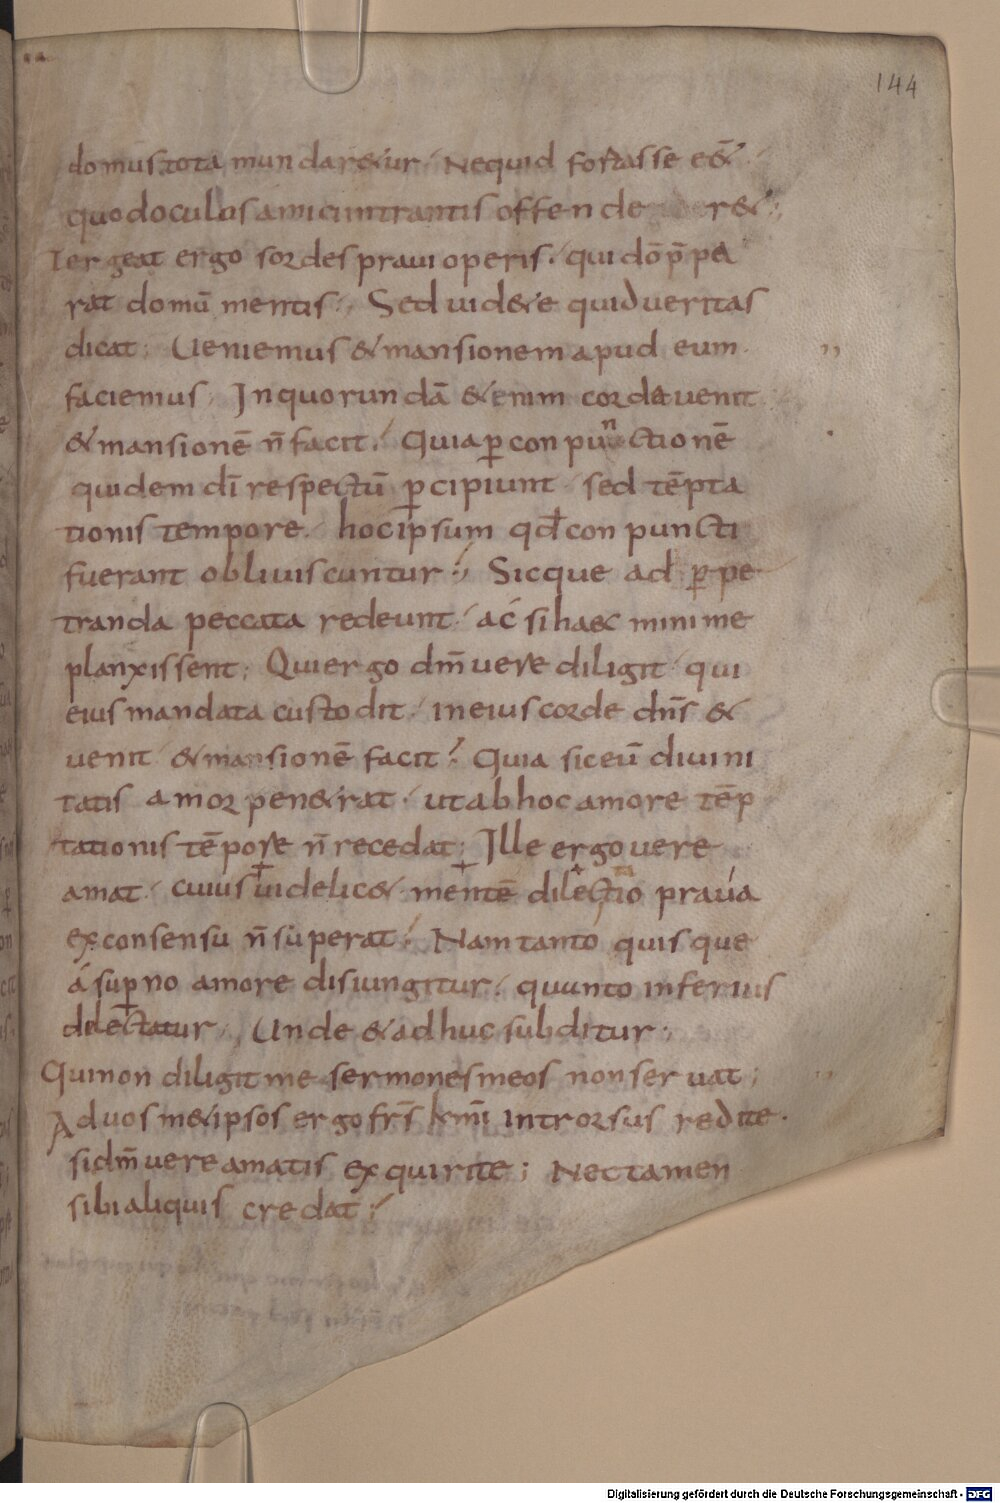 144
domus tota mundar&ur. Nequid fortasse eẽt
quod oculus amici intrantis offenderet;
Tergeat ergo sordes praui operis. qui dō p̄pa
rat domū mentis; Sed uid&e quid ueritas
dicat; Ueniemus & mansionem apud eum
faciemus. In quorundā & enim corda uenit
& mansionē n̄ facit. Quia ꝑ conpunctionē
quidem dī respectū ꝑcipiunt. sed tēpta
tionis tempore. hoc ipsum qđ conpuncti
fuerant obliuiscuntur; Sicque ad ꝑpe
tranda peccata redeunt. ac si haec minime
planxissent; Qui ergo dm̄ uere diligit. qui
eius mandata custodit. in eius corde dn̄s &
uenit & mansionē facit. Quia sic eū diuini
tatis amor pen&rat. ut ab hoc amore tēp
tationis tēpore n̄ recedat; Ille ergo uere
amat. cuius uidelic& mentē dilectio praua
ex consensu n̄ superat. Nam tanto quisque
á suꝑno amore disiungitur. quanto inferius
delectatur; Unde & adhuc subditur.
Qui non diligit me sermones meos non seruat;
Ad uos m&ipsos ergo fr̄s km̄i introrsus redite.
si dm̄ uere amatis exquirite; Nec tamen
sibi aliquis credat.
Digitalisierung gefördert durch die Deutsche Forschungsgemeinschaft - DFG